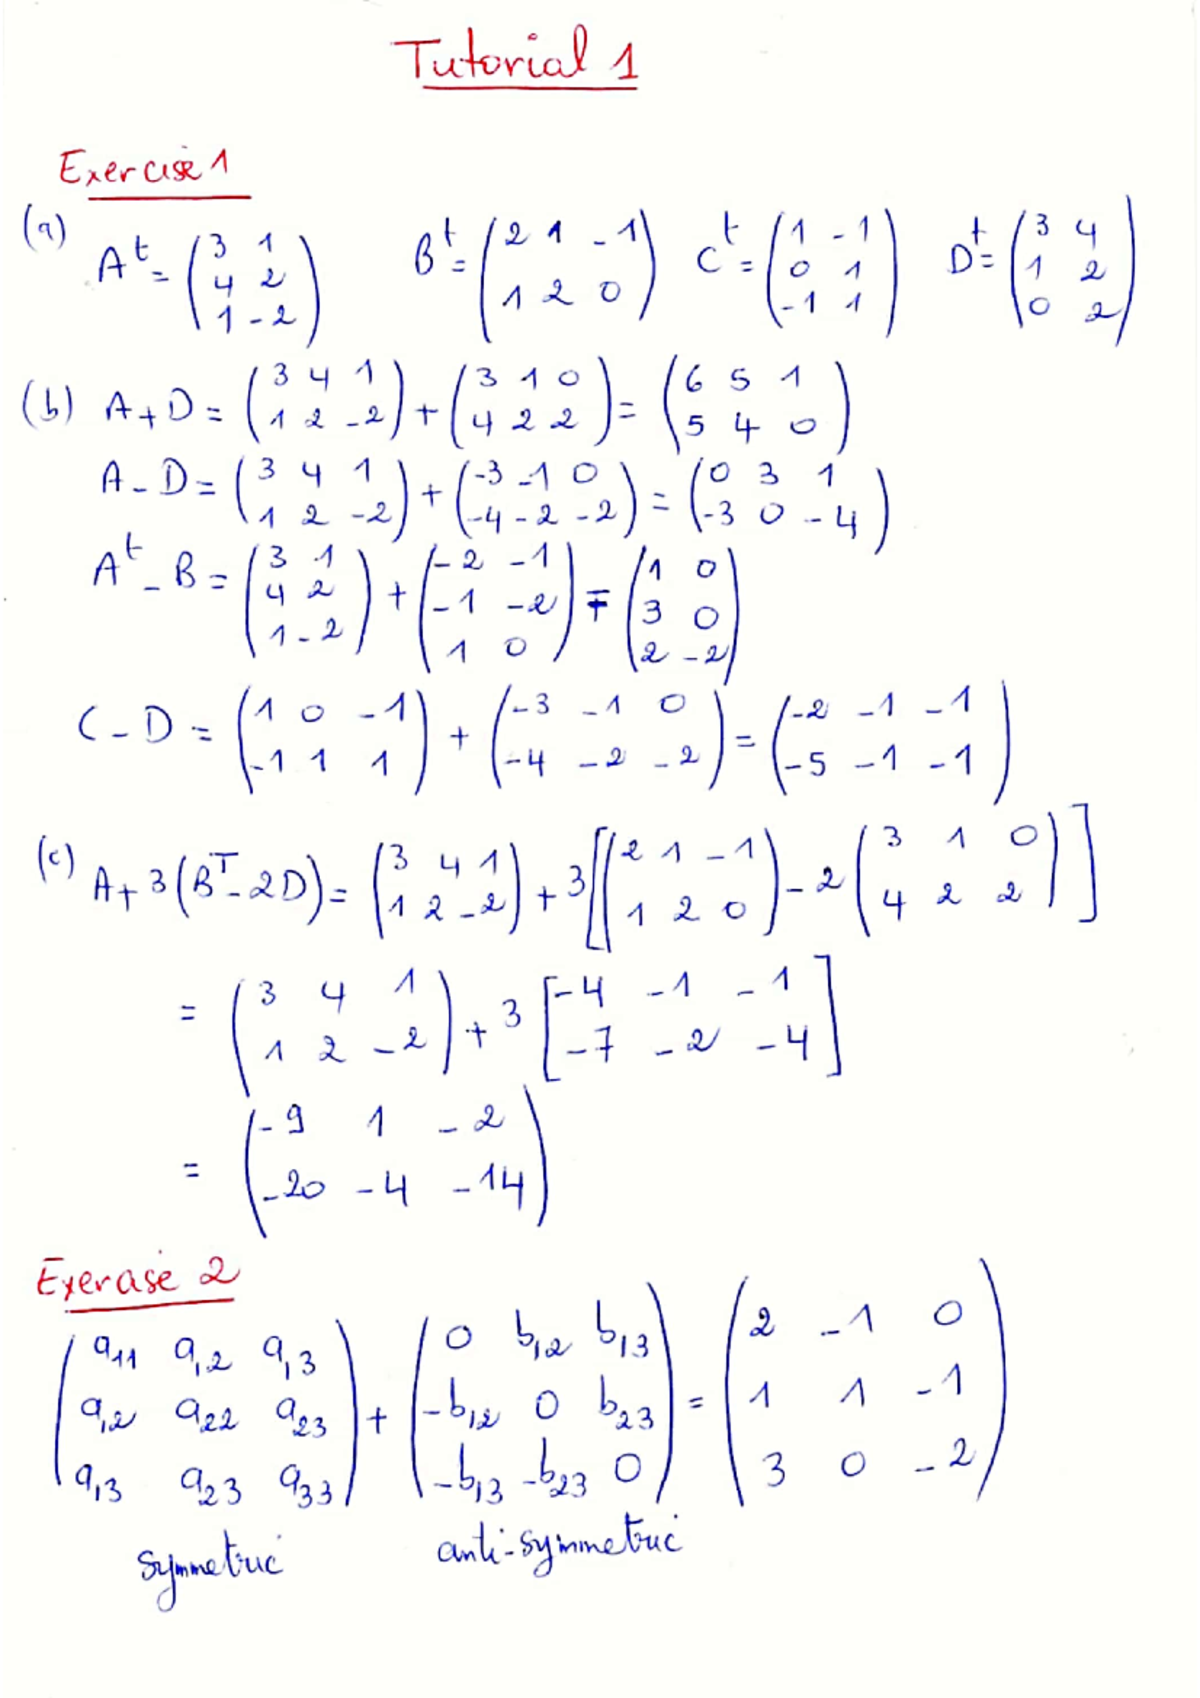 Tutorial 1
Exercise 1
(a) A^t = (3 1; 4 2; 1 -2) B^t = (2 1 -1; 1 2 0) C^t = (1 -1; 0 1; -1 1) D^t = (3 4; 1 2; 0 2)
(b) A+D = (3 4 1; 1 2 -2) + (3 1 0; 4 2 2) = (6 5 1; 5 4 0)
A-D = (3 4 1; 1 2 -2) + (-3 -1 0; -4 -2 -2) = (0 3 1; -3 0 -4)
A^t - B = (3 1; 4 2; 1 -2) + (-2 -1; -1 -2; 1 0) = (1 0; 3 0; 2 -2)
C-D = (1 0 -1; -1 1 1) + (-3 -1 0; -4 -2 -2) = (-2 -1 -1; -5 -1 -1)
(c) A+3(B^T-2D) = (3 4 1; 1 2 -2) + 3[(2 1 -1; 1 2 0) - 2(3 1 0; 4 2 2)]
= (3 4 1; 1 2 -2) + 3[-4 -1 -1; -7 -2 -4]
= (-9 1 -2; -20 -4 -14)
Exercise 2
(a11 a12 a13; a12 a22 a23; a13 a23 a33) + (0 b12 b13; -b12 0 b23; -b13 -b23 0) = (2 -1 0; 1 1 -1; 3 0 -2)
symmetric anti-symmetric